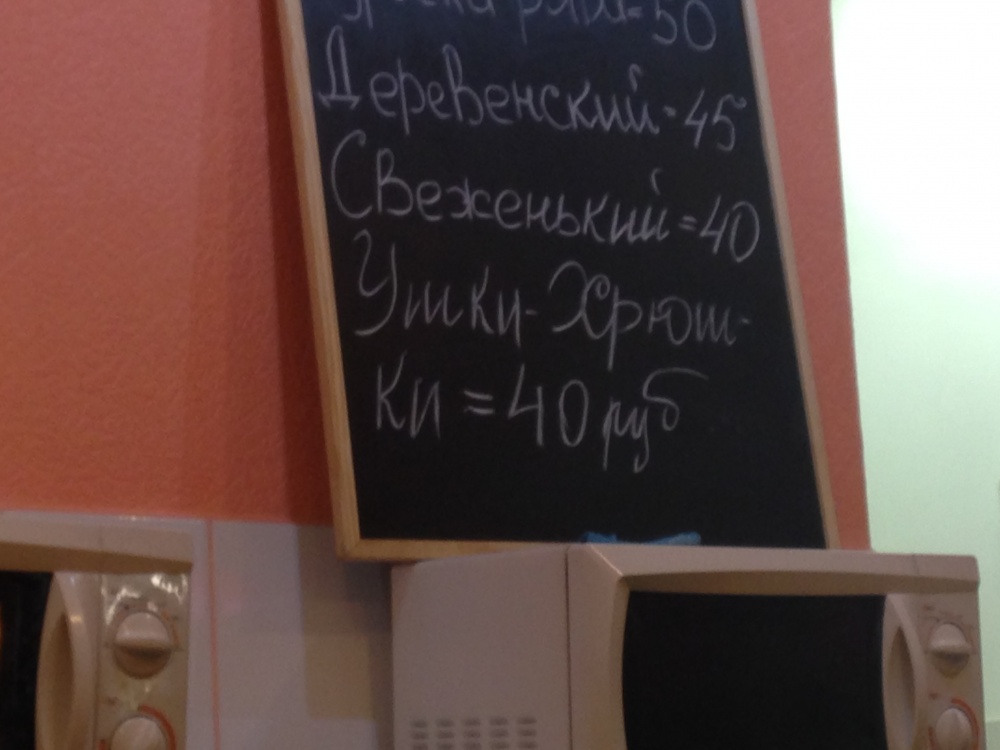 =50
Деревенский-45
Свеженький=40
Ушки-Хрюш-
ки=40руб